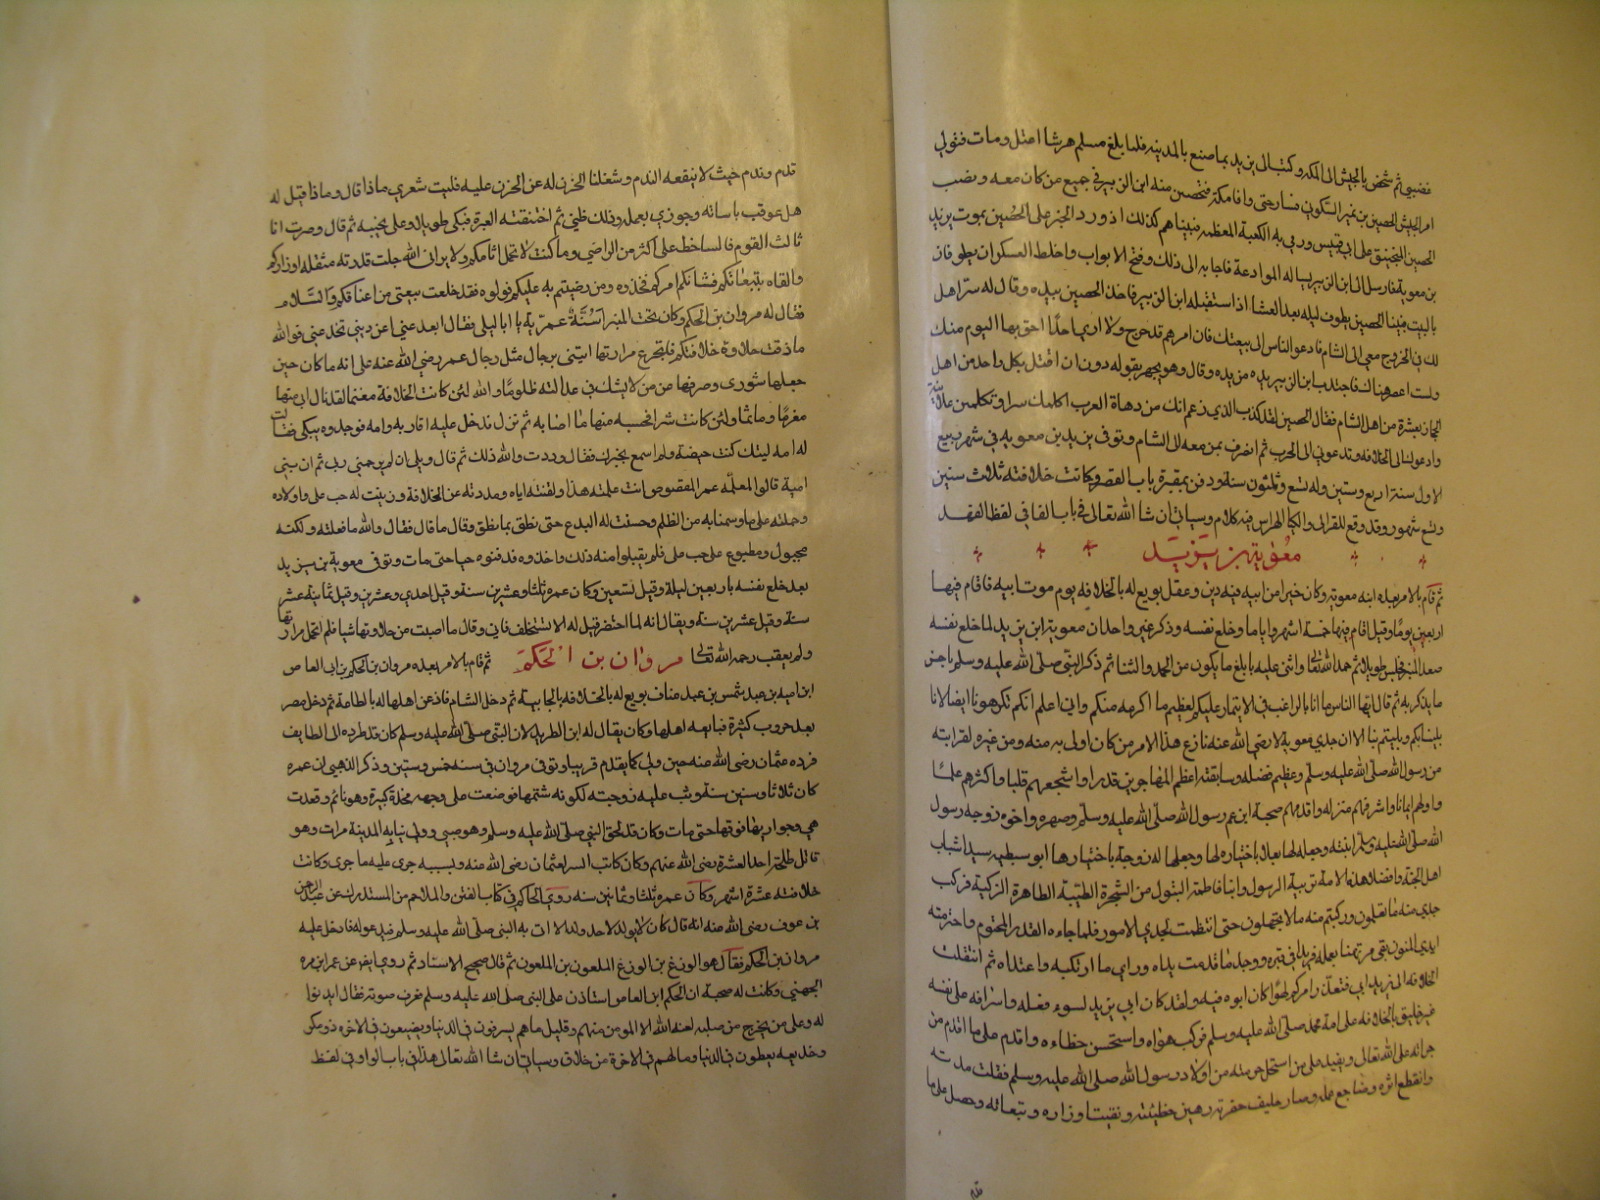 فضيبي ثم شخص بالجيش الى المكة وكتب الى يزيد بما صنع بالمدينه فلما بلغ مسلم هرشا اعتل ومات فتولى
امر الجيش الحصين بن نمير السكوني فسار حتى وافا مكة فتحصن منه ابن الزبير في جميع من كان معه ونصب
الحصين المنجنيق على ابي قبيس ورمى به الكعبة المعظمه فبينا هم كذلك اذ ورد الخبر على الحصين بموت يزيد
بن معوية فارسل الى ابن الزبير يساله الموادعة فاجابه الى ذلك وفتح الابواب واختلط العسكران يطوفان
بالبيت فبينا الحصين يطوف ليله بعد العشا اذ استقبله ابن الزبير فاخذ الحصين بيده وقال له سرا هل
لك في الخروج معي الى الشام فادعو الناس الى بيعتك فان امرهم قد مرج ولا ارى احدا احق بها اليوم منك
ولست اعصى هناك فاجتذب ابن الزبير يده من يده وقال وهو يجهر بقوله دون ان اقتل بكل واحد من اهل
الحجاز عشرة من اهل الشام فقال الحصين لقد كذب الذي زعم انك من دهاة العرب اكلمك سرا وتكلمني علانية
وادعوك الى الخلافه وتدعوني الى الحرب ثم انصرف بمن معه الى الشام وتوفي يزيد بن معويه في شهر ربيع
الاول سنة اربع وستين وله تسع وثلثون سنة ودفن بمقبرة باب الصغير وكانت خلافته ثلاث سنين
وتسع شهور وقد وقع للغزالي والكيا الهراس فيه كلام وسياتي ان شا الله تعالى في باب الفا في لفظ الفهد
معوية بن يزيد
ثم قام بالامر بعده ابنه معويه وكان خيرا من ابيه فيه دين وعقل بويع له بالخلافه يوم موت ابيه فاقام فيها
اربعين يوما وقيل اقام فيها خمسة اشهر واياما وخلع نفسه وذكر غير واحد ان معوية ابن يزيد لما خلع نفسه
صعد المنبر فجلس طويلا ثم حمد الله تعالى واثنى عليه بابلغ ما يكون من الحمد والثنا ثم ذكر النبي صلى الله عليه وسلم باحسن
ما يذكر به ثم قال ايها الناس ما انا بالراغب في الايتمار عليكم لعظيم ما اكرهه منكم واني اعلم انكم تكرهونا ايضا لانا
بلينا بكم وبليتم بنا الا ان جدي معوية رضي الله عنه نازع هذا الامر من كان اولى به منه ومن غيره لقرابته
من رسول الله صلى الله عليه وسلم وعظيم فضله وسابقته اعظم المهاجرين قدرا واشجعهم قلبا واكثرهم علما
واولهم ايمانا واشرفهم منزله واقدمهم صحبة ابن عم رسول الله صلى الله عليه وسلم وصهره واخوه زوجه رسول
الله صلى الله عليه وسلم ابنته وجعله لها بعلا باختياره لها وجعلها له زوجة باختيارها ابو سبطيه سيدا شباب
اهل الجنة وافضلا هذه الامة تربية الرسول وابنا فاطمة البتول من الشجرة الطيبة الطاهرة الزكية فركب
جدي منه ما تعلمون وركبتم منه ما لا تجهلون حتى انتظمت لجدي الامور فلما جاءه القدر المحتوم واخترمته
ايدي المنون بقي مرتهنا بعمله فريدا في قبره ووجد ما قدمت يداه وراى ما ارتكبه واعتداه ثم انتقلت
الخلافة الى يزيد ابي فتقلد امركم لهوا كان ابوه فيه ولقد كان ابي يزيد لسوء فعله واسرافه على نفسه
غير خليق بالخلافه على امة محمد صلى الله عليه وسلم فركب هواه واستحسن خطاءه واقدم على ما اقدم من
جراته على الله تعالى وبغيه على من استحل حرمته من اولاد رسول الله صلى الله عليه وسلم فقلت مدته
وانقطع اثره وضاجع عمله وصار حليف حفرته رهين خطيئته وبقيت اوزاره وتبعاته وحصل على ما
قدم وندم حيث لا ينفعه الندم وشغلنا الحزن له عن الحزن عليه فليت شعري ماذا قال وماذا قيل له
هل عوقب باساته وجوزي بعمله وذلك ظني ثم اختنقته العبرة فبكى طويلا وعلى نحيبه ثم قال وصرت انا
ثالث القوم فالساخط علي اكثر من الراضي وما كنت لاتحمل اثامكم ولا يراني الله جلت قدرته متقلدا اوزاركم
والقاه بتبعاتكم فشانكم امركم فخذوه ومن رضيتم به عليكم فولوه فقد خلعت بيعتي من اعناقكم والسلام
فقال له مروان بن الحكم وكان تحت المنبر اسنة عمرية يا ابا ليلى فقال ابعد عني اعن ديني تخدعني فوالله
ما ذقت حلاوة خلافتكم فاتجرع مرارتها ايتني برجال مثل رجال عمر رضي الله عنه على انه ما كان حين
جعلها شورى وصرفها عن من لا يشك في عدالته ظلوما والله لئن كانت الخلافة مغنما لقد نال ابي منها
مغرما وماثما ولئن كانت شرا فحسبه منها ما اصابه ثم نزل فدخل عليه اقاربه وامه فوجدوه يبكي فقالت
له امه ليتك كنت حيضة ولم اسمع بخبرك فقال وددت والله ذلك ثم قال ويلي ان لم يرحمني ربي ثم ان بني
امية قالوا لمعلمه عمر المقصوص انت علمته هذا ولقنته اياه وصددته عن الخلافة وزينت له حب علي واولاده
وحملته على ما وسمنا به من الظلم وحسنت له البدع حتى نطق بما نطق وقال ما قال فقال والله ما فعلته ولكنه
مجبول ومطبوع على حب علي فلم يقبلوا منه ذلك واخذوه فدفنوه حيا حتى مات وتوفي معوية بن يزيد
بعد خلع نفسه باربعين ليلة وقيل تسعين وكان عمره ثلثا وعشرين سنة وقيل احدي وعشرين وقيل ثمانية عشر
سنة وقيل عشرين سنة ويقال انه لما احتضر قيل له الا تستخلف فابى وقال ما اصبت من حلاوتها شيا فلم اتحمل مرارتها
ولم يعقب رحمه الله تعالى مروان بن الحكم ثم قام بالامر بعده مروان بن الحكم بن ابي العاص
ابن اميه بن عبد شمس بن عبد مناف بويع له بالخلافه بالجابية ثم دخل الشام فاذعن اهلها له بالطاعة ثم دخل مصر
بعد حروب كثيرة فبايعه اهلها وكان يقال له ابن الطريد لان النبي صلى الله عليه وسلم كان قد طرده الى الطايف
فرده عثمان رضى الله عنه حين ولي كما تقدم قريبا وتوفي مروان في سنه خمس وستين وذكر الذهبي ان عمره
كان ثلاثا وستين سنة وثبت عليه زوجته لكونه شتمها فوضعت على وجهه مخدة كبيرة وهو نائم وقعدت
هي وجواريها فوقها حتى مات وكان قد لحق النبي صلى الله عليه وسلم وهو صبي وولي نيابة المدينة مرات وهو
قاتل طلحة احد العشرة رضي الله عنهم وكان كاتب السر لعثمان رضى الله عنه وبسببه جرى عليه ما جرى وكانت
خلافته عشرة اشهر وكان عمره ثلثا وثمانين سنه روى الحاكم في كتاب الفتن والملاحم من المستدرك عن عبد الرحمن
بن عوف رضى الله عنه انه قال كان لا يولد لاحد ولد الا اتى به النبي صلى الله عليه وسلم فيدعو له فادخل عليه
مروان بن الحكم فقال هو الوزغ بن الوزغ الملعون بن الملعون ثم قال صحيح الاسناد ثم روى ايضا عن عمرو بن مره
الجهني وكانت له صحبة ان الحكم ابن العاص استاذن على النبي صلى الله عليه وسلم فعرف صوته فقال ايذنوا
له وعلى من يخرج من صلبه لعنة الله الا المومن منهم وقليل ما هم يسرفون في الدنيا ويضيعون في الاخره ذو مكر
وخديعه يعطون في الدنيا وما لهم في الاخرة من خلاق وسياتي ان شا الله تعالى هذا في باب الواو في لفظ